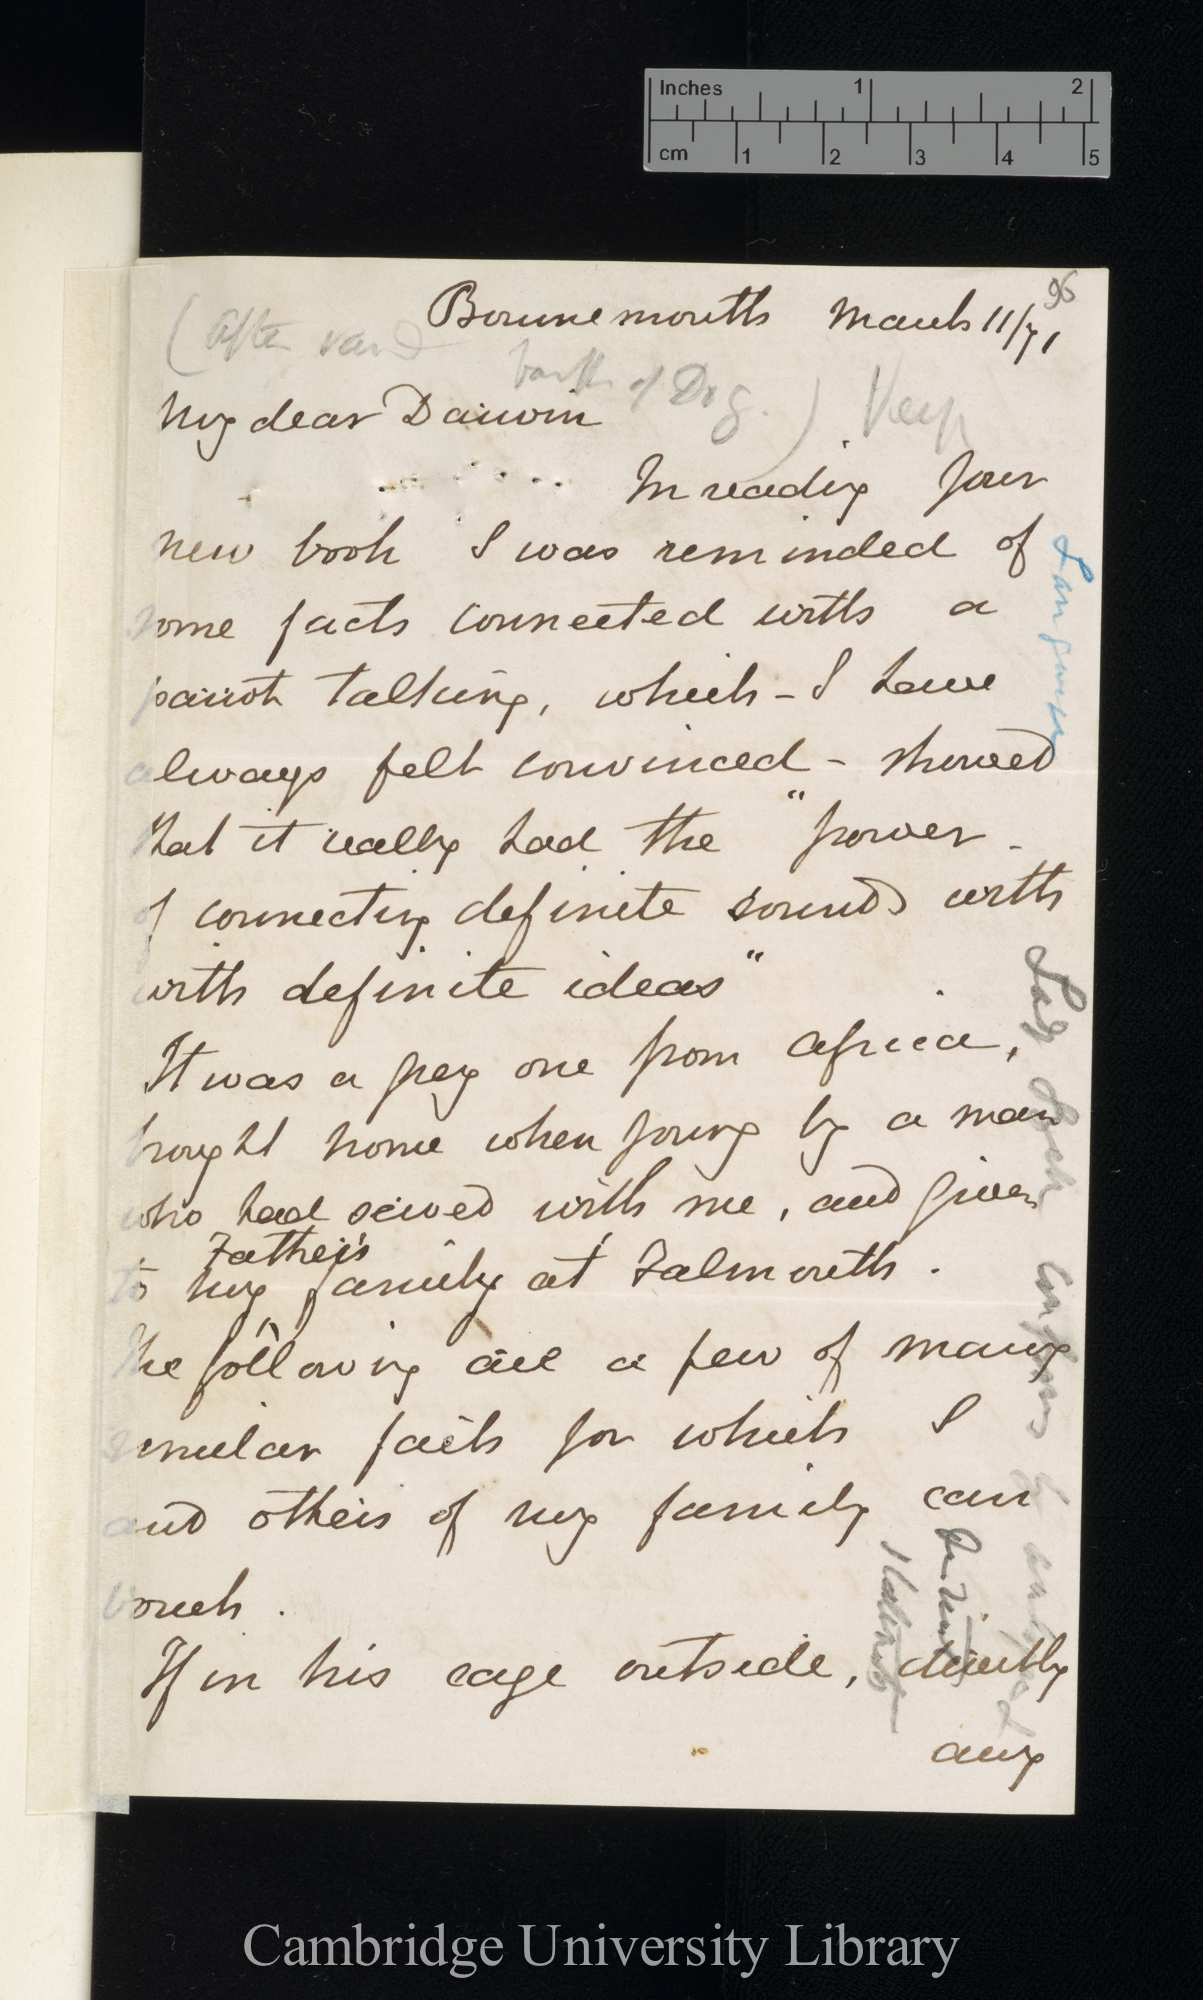 Inches 1 2
cm 1 2 3 4 5
96
Bournemouth March 11/71
(After
bark of Dog.) Keep
My dear Darwin
In reading your
new book I was reminded of
some facts connected with a
parrot talking, which - I have
always felt convinced - showed
that it really had the "power
of connecting definite sounds with
with definite ideas"
It was a grey one from Africa,
brought home when young by a man
who had served with me, and given
Father's
to my family at Falmouth.
The following are a few of many
similar facts for which I
and others of my family can
vouch.
If in his cage outside, directly
any
Language
Cambridge University Library